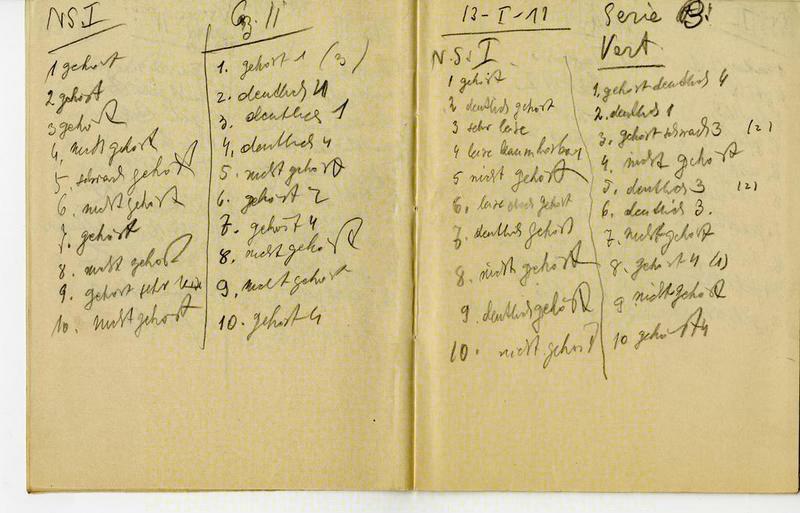 NS.I
1 gehört
2 gehört
3 gehört
4. nicht gehört
5. schwach gehört
6. nicht gehört
7. gehört
8. nicht gehört
9. gehört sehr
10. nicht gehört
II
1. gehört 1 (3)
2. deutlich 4
3. deutlich 1
4. deutlich 4
5. nicht gehört
6. gehört 2
7. gehört 4
8. nicht gehört
9. nicht gehört
10. gehört 4
13-I-11 Serie B
N.S. I
1 gehört
2 deutlich gehört
3 sehr leise
4 leise kaum hörbar
5 nicht gehört
6. leise gehört
7. deutlich gehört
8. nicht gehört
9. deutlich gehört
10. nicht gehört
Vert.
1. gehört deutlich 4
2. deutlich 1
3. gehört schwach 3 (2)
4. nicht gehört
5. deutlich 3 (2)
6. deutlich 3.
7. nicht gehört
8. gehört 4 (1)
9 nicht gehört
10 gehört 4